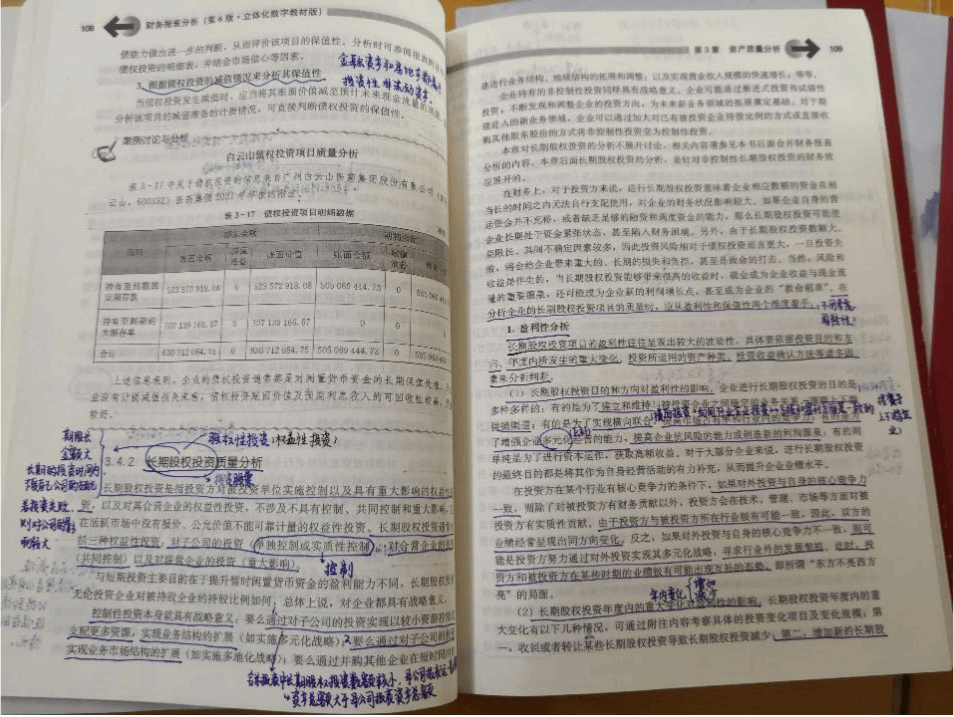 108
财务报表分析（第6版·立体化数字教材版）
便能力做出进一步的判断，从而评价该项目的保值性。分析时可参阅报表附注
债权投资的明细表，并结合市场信心等因素。
3. 根据债权投资的减值情况来分析其保值性
当债权投资发生减值时，应当将其账面价值减至预计未来现金流量的现值
分析该项目的减值准备的计提情况，可直接判断债权投资的保值性。
案例讨论与分析
白云山债权投资项目质量分析
表3-17中关于债权投资的信息来自广州白云山医药集团股份有限公司
云山，600332）披露集团2021年年报的附注。
表3-17 债权投资项目明细数据
账面余额 减值准备 账面价值 账面余额 减值准备
持有至到期的定期存款 523 572 918.08 0 523 572 918.08 505 069 444.73 0
持有至到期的大额存单 107 139 166.67 0 107 139 166.67 0 0
合计 630 712 084.75 0 630 712 084.75 505 069 444.73 0
上述信息表明，企业的债权投资通常都是对闲置货币资金的长期保值处理，
业没有计提减值损失来看，债权投资账面价值及预期利息收入的可回收性较强，
较好。
股权性投资（权益性投资）
3.4.2 长期股权投资质量分析
长期股权投资是指投资方对被投资单位实施控制以及具有重大影响的权益性
资，以及对其合营企业的权益性投资，不涉及不具有控制、共同控制和重大影响，
在活跃市场中没有报价、公允价值不能可靠计量的权益性投资。长期股权投资通常包
括三种权益性投资：对子公司的投资（单独控制或实质性控制）、对合营企业的投资
（共同控制）以及对联营企业的投资（重大影响）。
控制
与短期投资主要目的在于提升暂时闲置货币资金的盈利能力不同，长期股权投资
无论投资企业对被持股企业的持股比例如何，总体上说，对企业都具有战略意义。
控制性投资本身就具有战略意义：要么通过对子公司的投资实现以较小资源控制或
支配更多资源，实现业务结构的扩展（如实施多元化战略）；要么通过对子公司的投资
实现业务市场结构的扩展（如实施多地化战略）；要么通过并购其他企业在短时间内
期限长
金额大
若投资失败
资产总额大于母公司报表资产总额
第3章 资产质量分析
109
速进行业务结构、地域结构的拓展和调整，以及实现营业收入规模的快速增长；等等。
企业持有的非控制性投资同样具有战略意义。企业可能通过渐进式投资和试错性
投资，不断发现和调整企业的投资方向，为未来新业务领域的拓展奠定基础。对于期
望进入的新业务领域，企业可以通过加大对已有被投资企业持股比例的方式或直接收
购其他股东股份的方式将非控制性投资变为控制性投资。
本章对长期股权投资的分析不展开讨论，相关内容请参见本书后面合并财务报表
分析的内容。本章后面长期股权投资的分析，是针对非控制性长期股权投资的财务效
应展开的。
在财务上，对于投资方来说，进行长期股权投资意味着企业相应数额的资金在相
当长的时间之内无法自行支配使用，对企业的财务状况影响较大。如果企业自身的营
运资金并不充裕，或者缺乏足够的融资和调度资金的能力，那么长期股权投资可能使
企业长期处于资金紧张状态，甚至陷入财务困境。另外，由于长期股权投资数额大、
期限长、其间不确定因素较多，因此投资风险相对于债权投资而言更大，一旦投资失
败，将会给企业带来重大的、长期的损失和负担，甚至是致命的打击。当然，风险和
收益是伴生的，当长期股权投资能够带来很高的收益时，就会成为企业收益与现金流
量的重要源泉，还可能成为企业新的利润增长点，甚至成为企业的“救命稻草”。在
分析企业的长期股权投资项目的质量时，应从盈利性和保值性两个维度着手。
1. 盈利性分析
长期股权投资项目的盈利性往往呈现出较大的波动性，具体要依据投资目的和方
向、年度内所发生的重大变化、投资所运用的资产种类、投资收益确认方法等诸多因
素来分析判断。
（1）长期股权投资目的和方向对盈利性的影响。企业进行长期股权投资的目的是
多种多样的：有的是为了建立和维持与被投资企业之间稳定的业务关系，
销渠道；有的是为了实现横向联合，提高市场占有率和行业内的
了增强企业多元化经营的能力，提高企业抗风险的能力或创造新的利润源泉；有的则
单纯是为了进行资本运作，获取高额收益。对于大部分企业来说，进行长期股权投资
的最终目的都是将其作为自身经营活动的有力补充，从而提升企业业绩水平。
在投资方在某个行业有核心竞争力的条件下，如果对外投资与自身的核心竞争力
一致，则除了对被投资方有财务贡献以外，投资方会在技术、管理、市场等方面对被
投资方有实质性贡献。由于投资方与被投资方所在行业极有可能一致，因此，双方的
业绩经常呈现出同方向变化。反之，如果对外投资与自身的核心竞争力不一致，则可
能是投资方努力通过对外投资实现其多元化战略，寻求行业外的发展契机。此时，投
资方和被投资方在某些时期的业绩极有可能出现互补的态势，即所谓“东方不亮西方
亮”的局面。
年内变化 增加 减少
（2）长期股权投资年度内的重大变化对盈利性的影响。长期股权投资年度内的重
大变化有以下几种情况，可通过附注内容考察具体的投资变化项目及变化规模：第
一，收回或者转让某些长期股权投资导致长期股权投资减少；第二，增加新的长期股